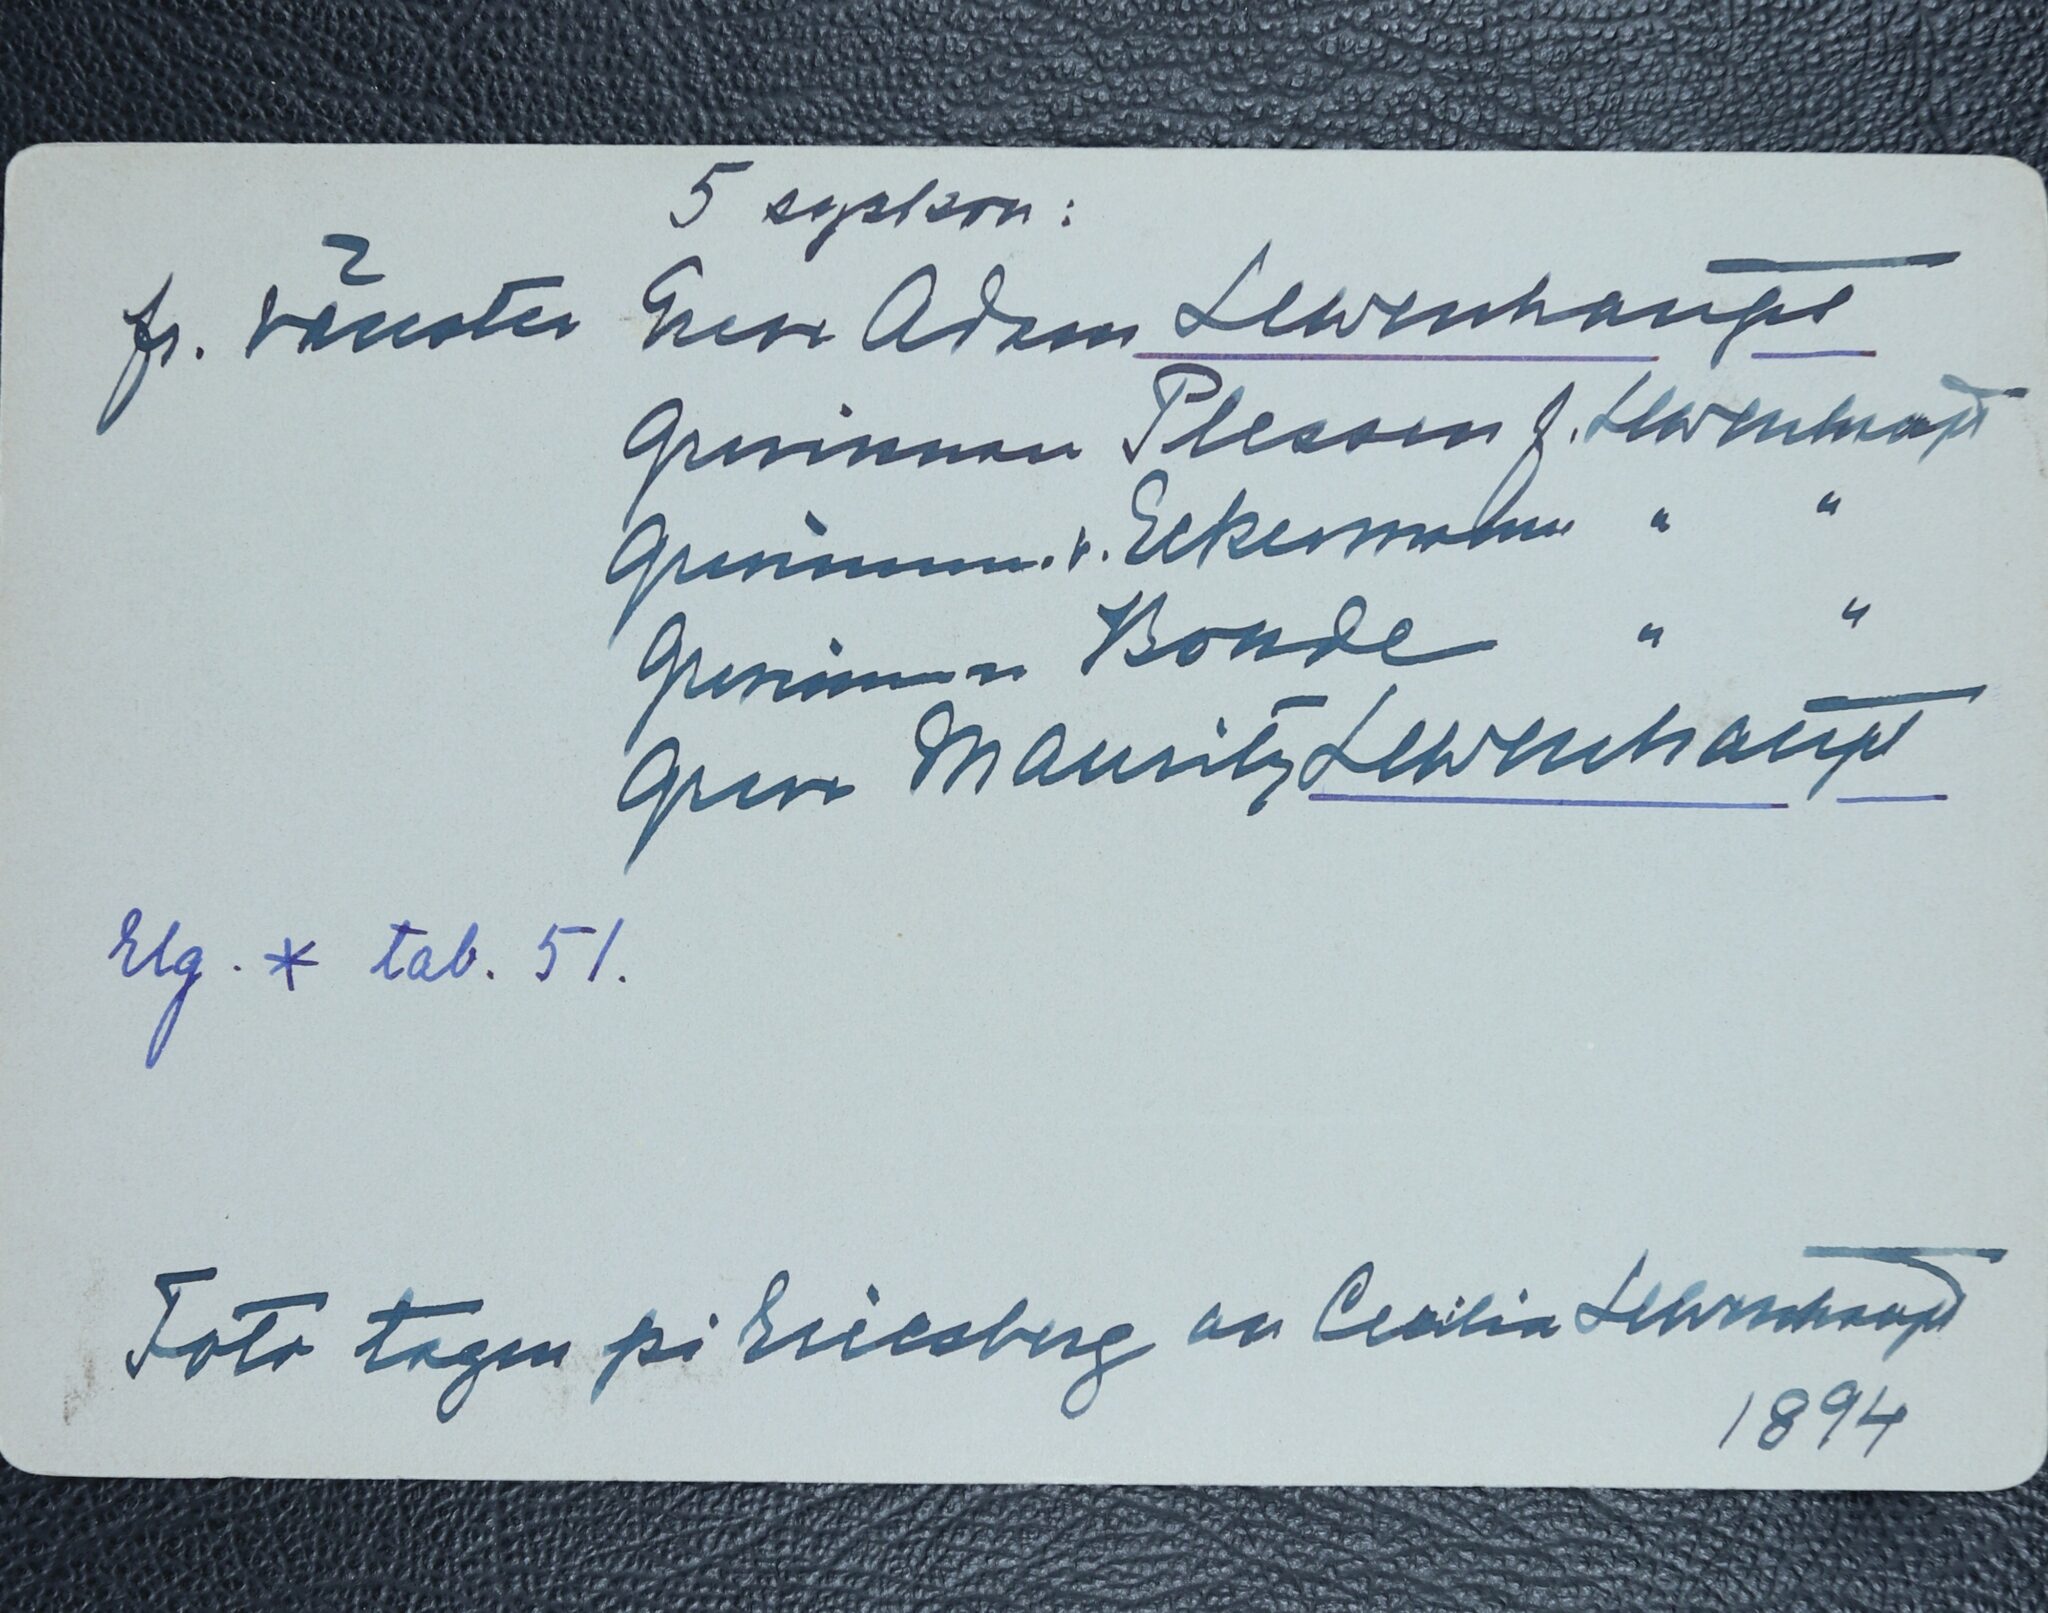 5 syskon:
fr. vänster Greve Adam Lewenhaupt
Grevinnan Plessen f. Lewenhaupt
Grevinnan v. Eckermann " "
Grevinnan Bonde " "
Greve Mauritz Lewenhaupt
Elg. * tab. 51.
Foto tagen på Ericsberg av Cecilia Lewenhaupt
1894